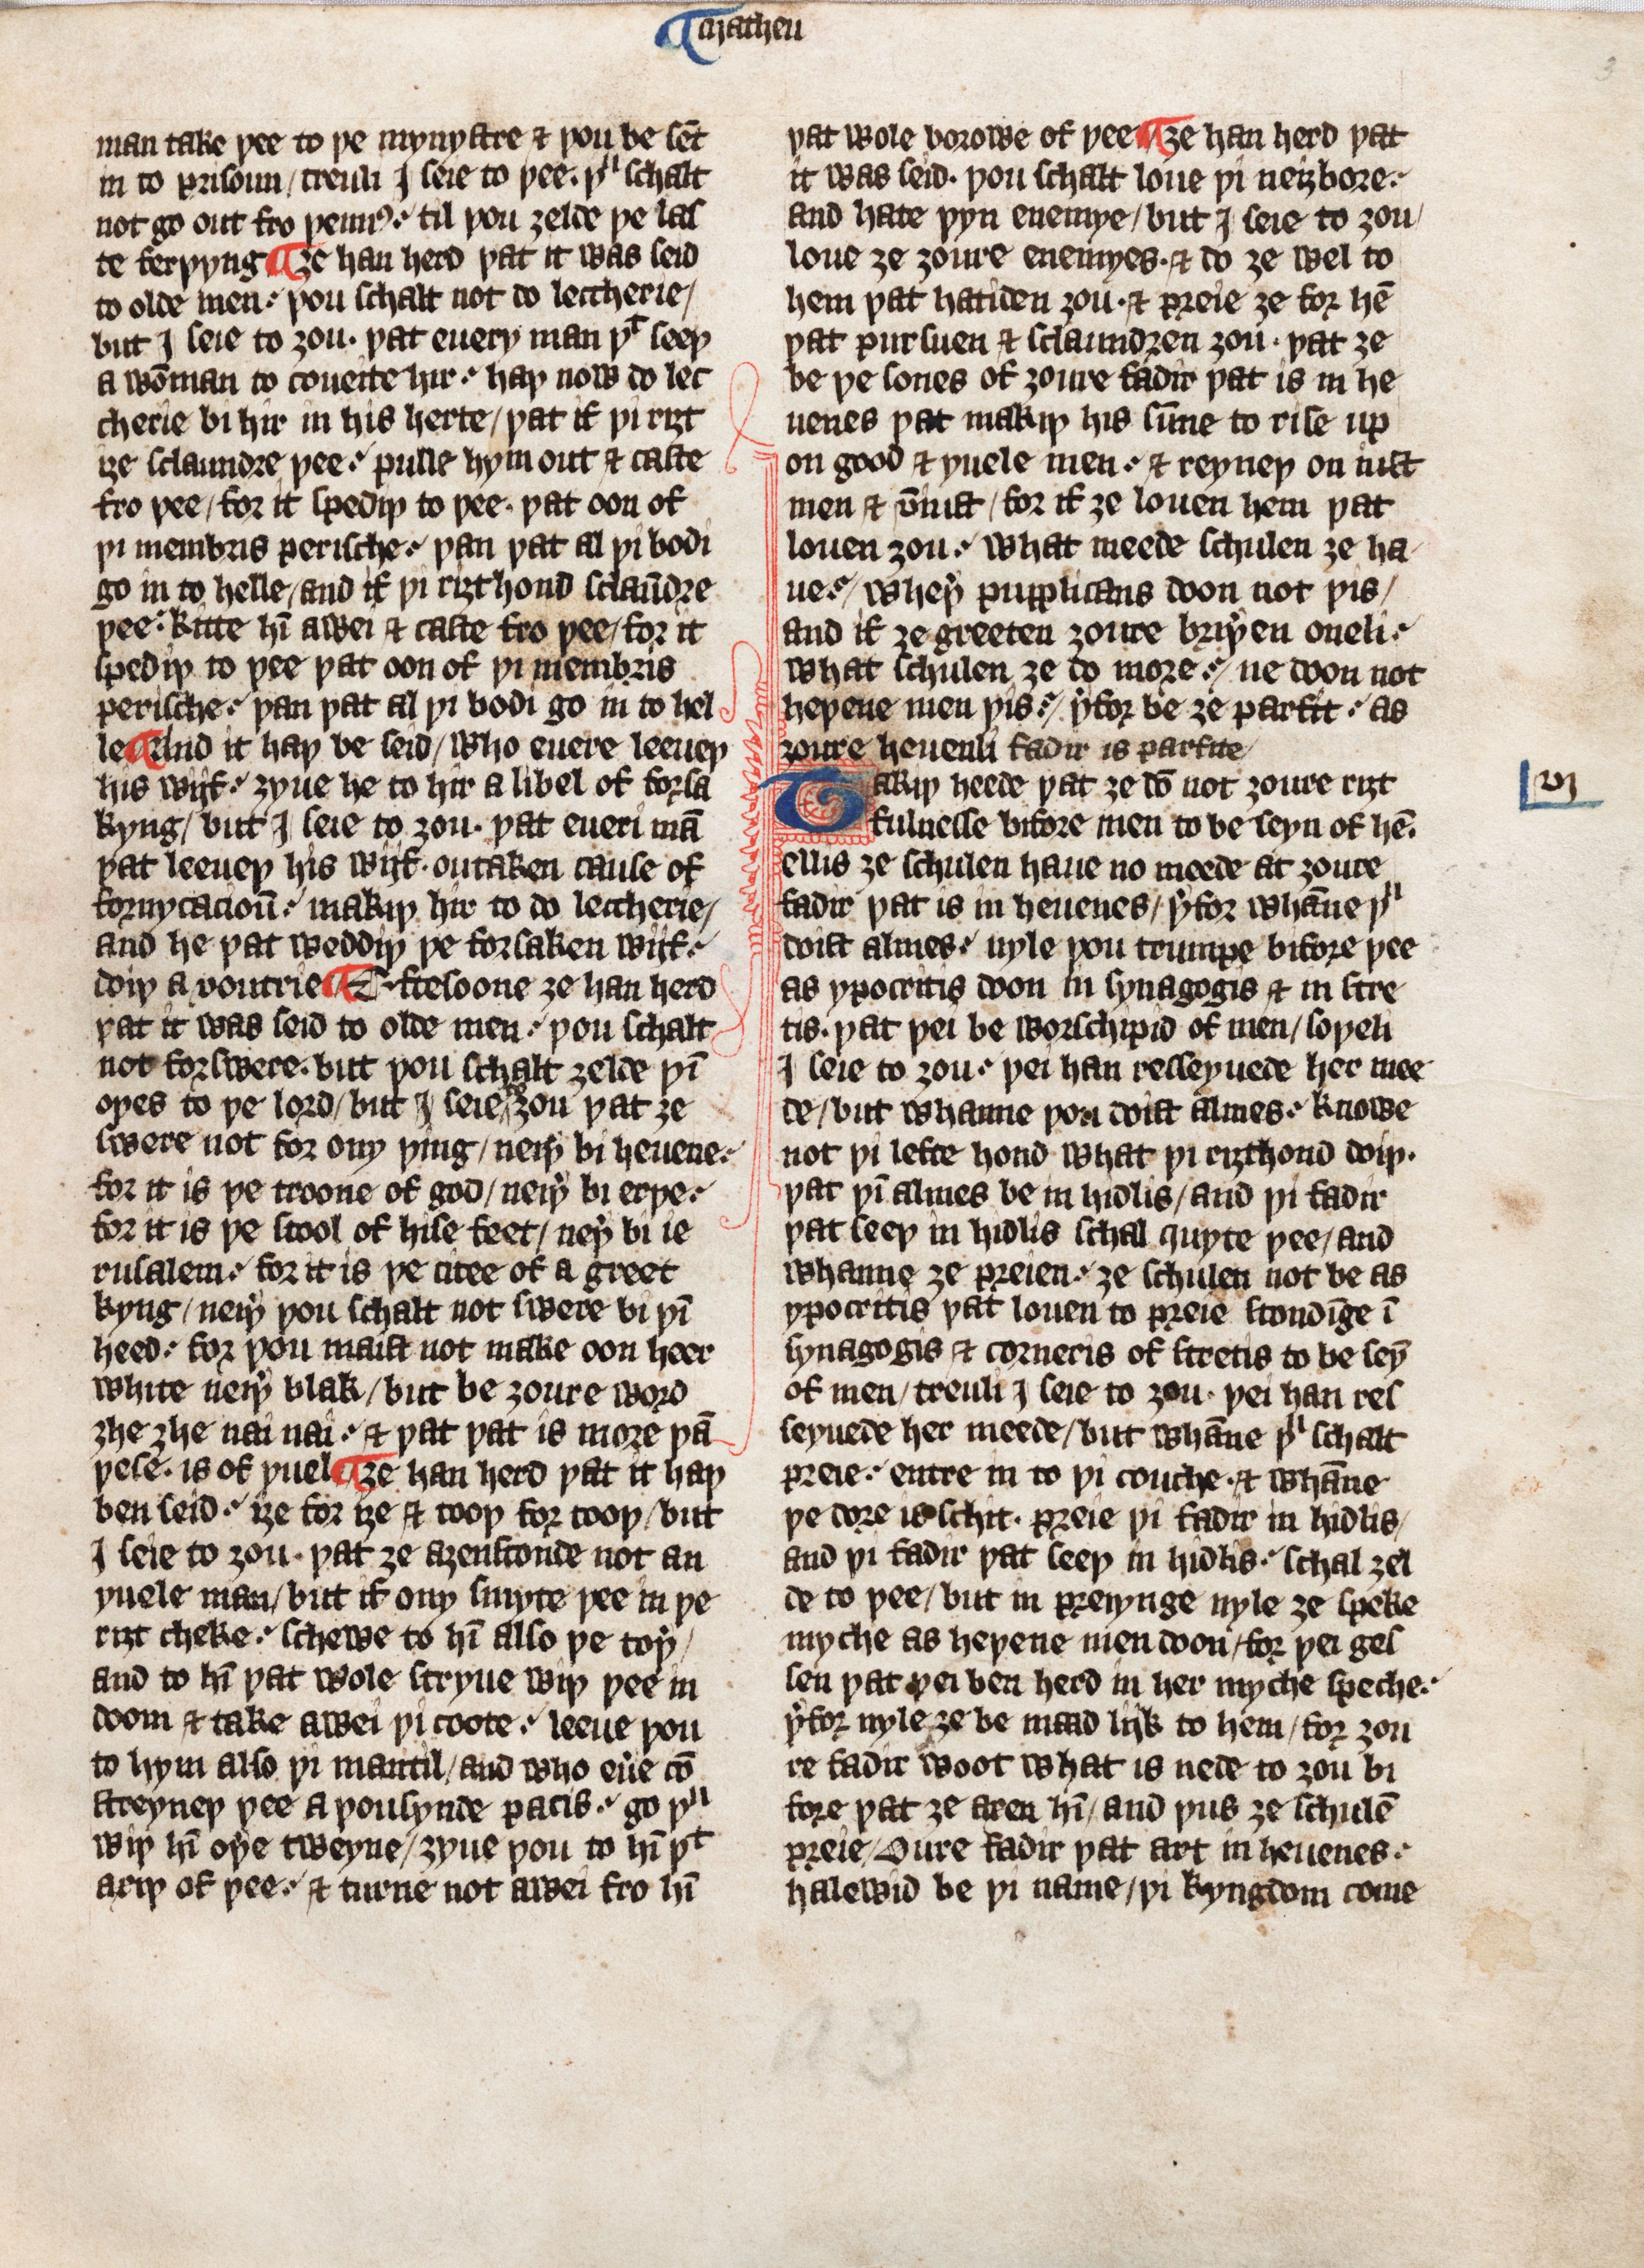 ¶ Matheu
3
man take þee to þe mynystre & þou be sēt
in to prisoun / treuli I seie to þee. þᵘ schalt
not go out fro þennꝰ: til þou ȝelde þe las
te ferþyng ¶ Ȝe han herd þat it was seid
to olde men: þou schalt not do leccherie /
but I seie to ȝou. þat euery man þᵗ seeþ
a wōman to coueite hir: haþ now do lec
cherie bi hir in his herte / þat if þi riȝt
iȝe sclaundre þee: pulle hym out & caste
fro þee / for it spediþ to þee. þat oon of
þi membris perische: þan þat al þi bodi
go in to helle / and if þi riȝt hond sclaūdre
þee: kitte hī awei & caste fro þee / for it
spediþ to þee þat oon of þi membris
perische: þan þat al þi bodi go in to hel
le ¶ And it haþ be seid / Who euere leeueþ
his wijf: ȝyue he to hir a libel of forsa
kyng / but I seie to ȝou. þat eueri mā
þat leeueþ his wijf. outaken cause of
fornycacioū: makiþ hir to do leccherie /
and he þat weddiþ þe forsaken wijf:
doiþ a voutrie ¶ Eftesoone ȝe han herd
þat it was seid to olde men: þou schalt
not forswere. but þou schalt ȝelde þī
oþes to þe lord / but I seie to ȝou þat ȝe
swere not for ony þing / neiþ̉ bi heuene:
for it is þe troone of god / neiþ̉ bi erþe:
for it is þe stool of hise feet / neþ̉ bi ie
rusalem: for it is þe citee of a greet
kyng / neiþ̉ þou schalt not swere bi þī
heed: for þou maist not make oon heer
white neiþ̉ blak / but be ȝoure word
ȝhe ȝhe nai nai: & þat þat is more þā
þese. is of yuel ¶ Ȝe han herd þat it haþ
ben seid: iȝe for iȝe & tooþ for tooþ / but
I seie to ȝou. þat ȝe aȝenstonde not an
yuele man / but if ony smyte þee in þe
riȝt cheke: schewe to hī also þe toþ̉ /
and to hī þat wole stryue wiþ þee in
doom & take awei þi coote: leeue þou
to hym also þi mantil / and who eủe cō
streyneþ þee a þousynde pacis: go þᵘ
wiþ hī oþ̉e tweyne / ȝyue þou to hī þᵗ
axiþ of þee: & turne not awei fro hī
þat wole borowe of þee ¶ Ȝe han herd þat
it was seid. þou schalt loue þi neiȝbore:
and hate þyn enemye / but I seie to ȝou /
loue ȝe ȝoure enemyes. & do ȝe wel to
hem þat hatiden ȝou. & preie ȝe for hē
þat pursuen & sclaundren ȝou. þat ȝe
be þe sones of ȝoure fadir þat is in he
uenes þat makiþ his sūne to rise up
on good & yuele men: & reyneþ on iust
men & v̄niust / for if ȝe louen hem þat
louen ȝou: what meede schulen ȝe ha
ue: / wheþ̉ pupplicans doon not þis /
and if ȝe greeten ȝoure briþ̉en oneli:
what schulen ȝe do more: / ne doon not
heþene men þis: / þ̉for be ȝe parfit: as
ȝoure heuenli fadir is parfite /
Takiþ heede þat ȝe dō not ȝoure riȝt
vj
fulnesse bifore men to be seyn of hē.
ellis ȝe schulen haue no meede at ȝoure
fadir þat is in heuenes / þ̉for whāne þᵘ
doist almes: nyle þou trumpe bifore þee
as ypocritis doon in synagogis & in stre
tis. þat þei be worschipid of men / soþeli
I seie to ȝou: þei han resseyuede her mee
de / but whanne þou doist almes: knowe
not þi lefte hond what þi riȝthond doiþ.
þat þī almes be in hidlis / and þi fadir
þat seeþ in hidlis schal quyte þee / and
whanne ȝe preien: ȝe schulen not be as
ypocritis þat louen to preie stondīge ī
synagogis & corneris of stretis to be seȳ
of men / treuli I seie to ȝou. þei han res
seyuede her meede / but whāne þᵘ schalt
preie: entre in to þi couche. & whāne
þe dore is schit. preie þi fadir in hidlis /
and þi fadir þat seeþ in hidlis: schal ȝel
de to þee / but in preiynge nyle ȝe speke
myche as heþene men doon / for þei ges
sen þat þei ben herd in her myche speche:
þ̉for nyle ȝe be maad lijk to hem / for ȝou
re fadir woot what is nede to ȝou bi
fore þat ȝe axen hī / and þus ȝe schulē
preie / Oure fadir þat art in heuenes:
halewid be þi name / þi kyngdom come